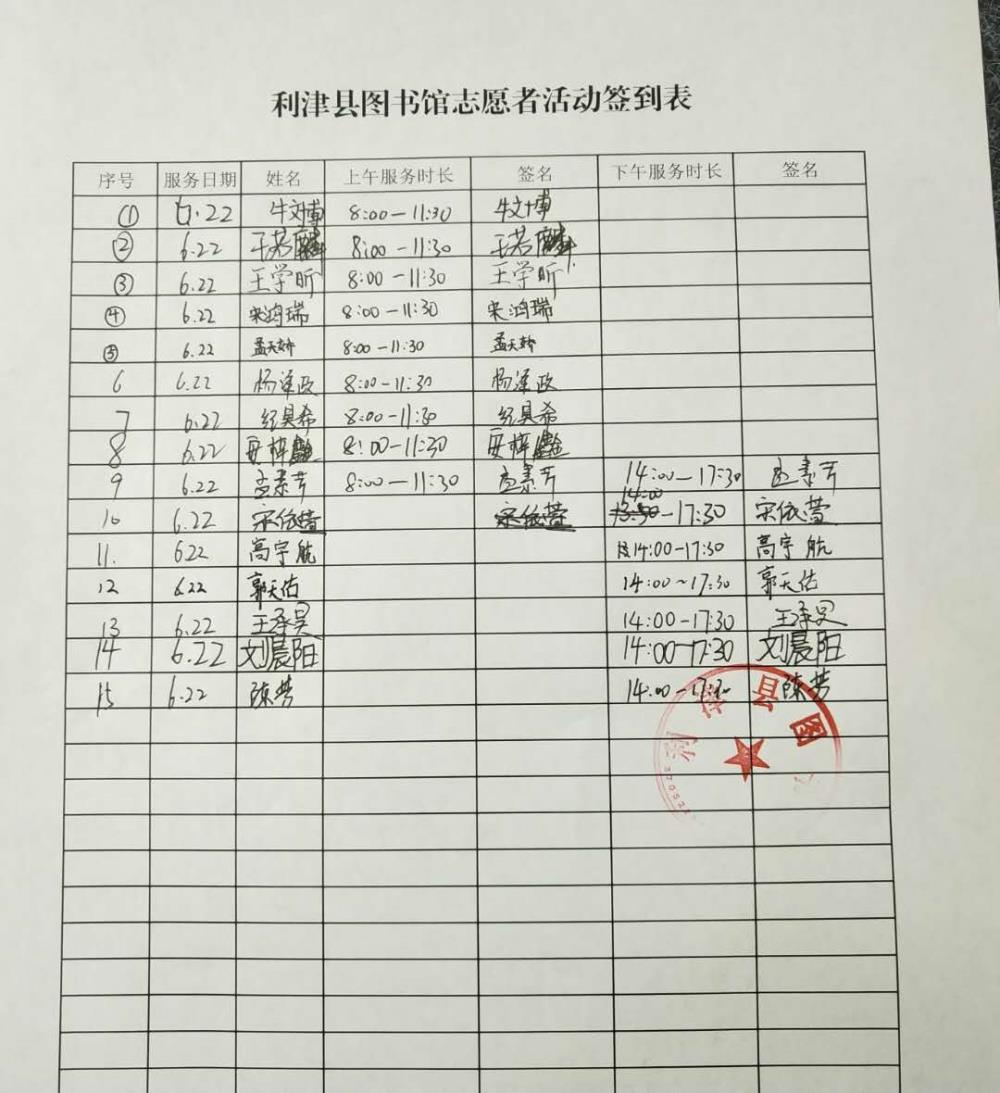 利津县图书馆志愿者活动签到表
序号 服务日期 姓名 上午服务时长 签名 下午服务时长 签名
① 6.22 牛文博 8:00-11:30 牛文博
② 6.22 王若麟 8:00-11:30 王若麟
③ 6.22 王学昕 8:00-11:30 王学昕
④ 6.22 宋鸿瑞 8:00-11:30 宋鸿瑞
⑤ 6.22 孟天娇 8:00-11:30 孟天娇
6 6.22 杨泽政 8:00-11:30 杨泽政
7 6.22 纪昊希 8:00-11:30 纪昊希
8 6.22 8:00-11:30
9 6.22 孟素芹 8:00-11:30 孟素芹 14:00-17:30 孟素芹
10 6.22 宋依萱 宋依萱 14:00-17:30 宋依萱
11. 6.22 高宇航 14:00-17:30 高宇航
12 6.22 郭天佑 14:00~17:30 郭天佑
13 6.22 王承昊 14:00-17:30 王承昊
14 6.22 刘晨阳 14:00-17:30 刘晨阳
15 6.22 陈芳 14:00-17:30 陈芳
利津县图